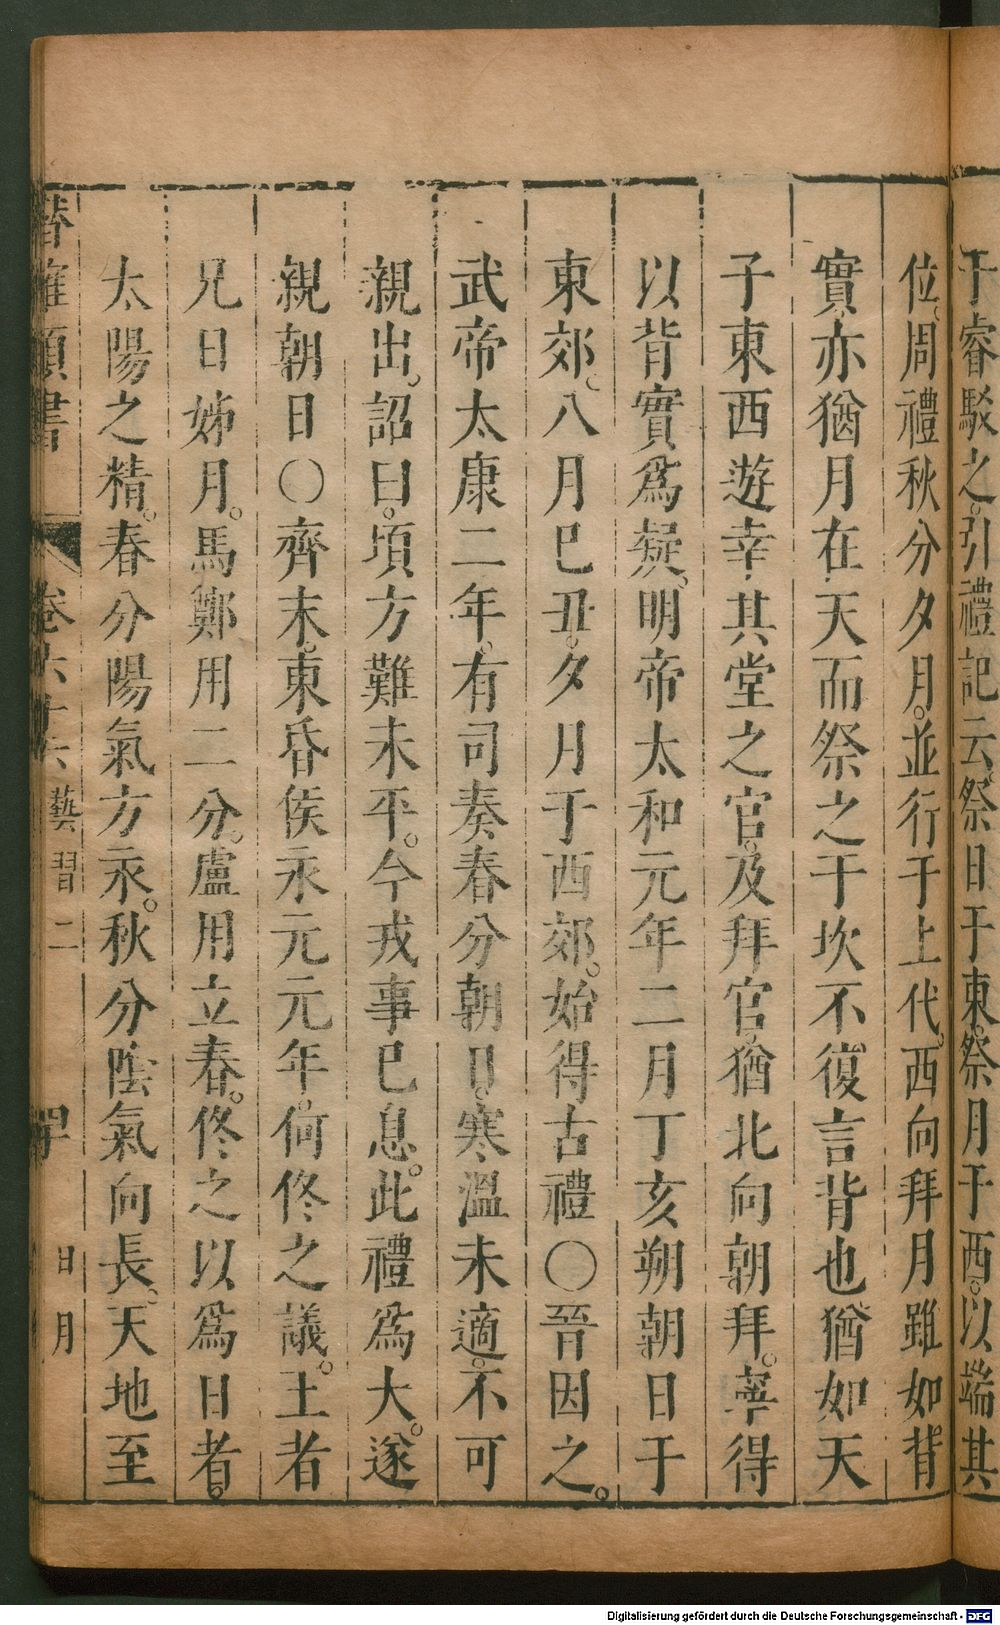 于睿駁之。引禮記云。祭日于東。祭月于西。以端其
位。周禮秋分夕月。並行于上代。西向拜月雖如背
實。亦猶月在天而祭之于坎不復言背也猶如天
子東西遊幸其堂之官。及拜官。猶北向朝拜。寧得
以背實爲疑。明帝太和元年二月丁亥朔朝日于
東郊。八月巳丑。夕月于西郊。始得古禮〇晉因之。
武帝太康二年。有司奏春分朝日。寒溫未適。不可
親出。詔曰。頃方難未平。今戎事已息。此禮爲大。遂
親朝日〇齊末。東昏侯永元元年。何佟之議。王者
兄日姊月。馬鄭用二分。盧用立春。佟之以爲日者。
太陽之精。春分陽氣方永。秋分陰氣向長。天地至
卷六十六 藝習二 日月
Digitalisierung gefördert durch die Deutsche Forschungsgemeinschaft - DFG